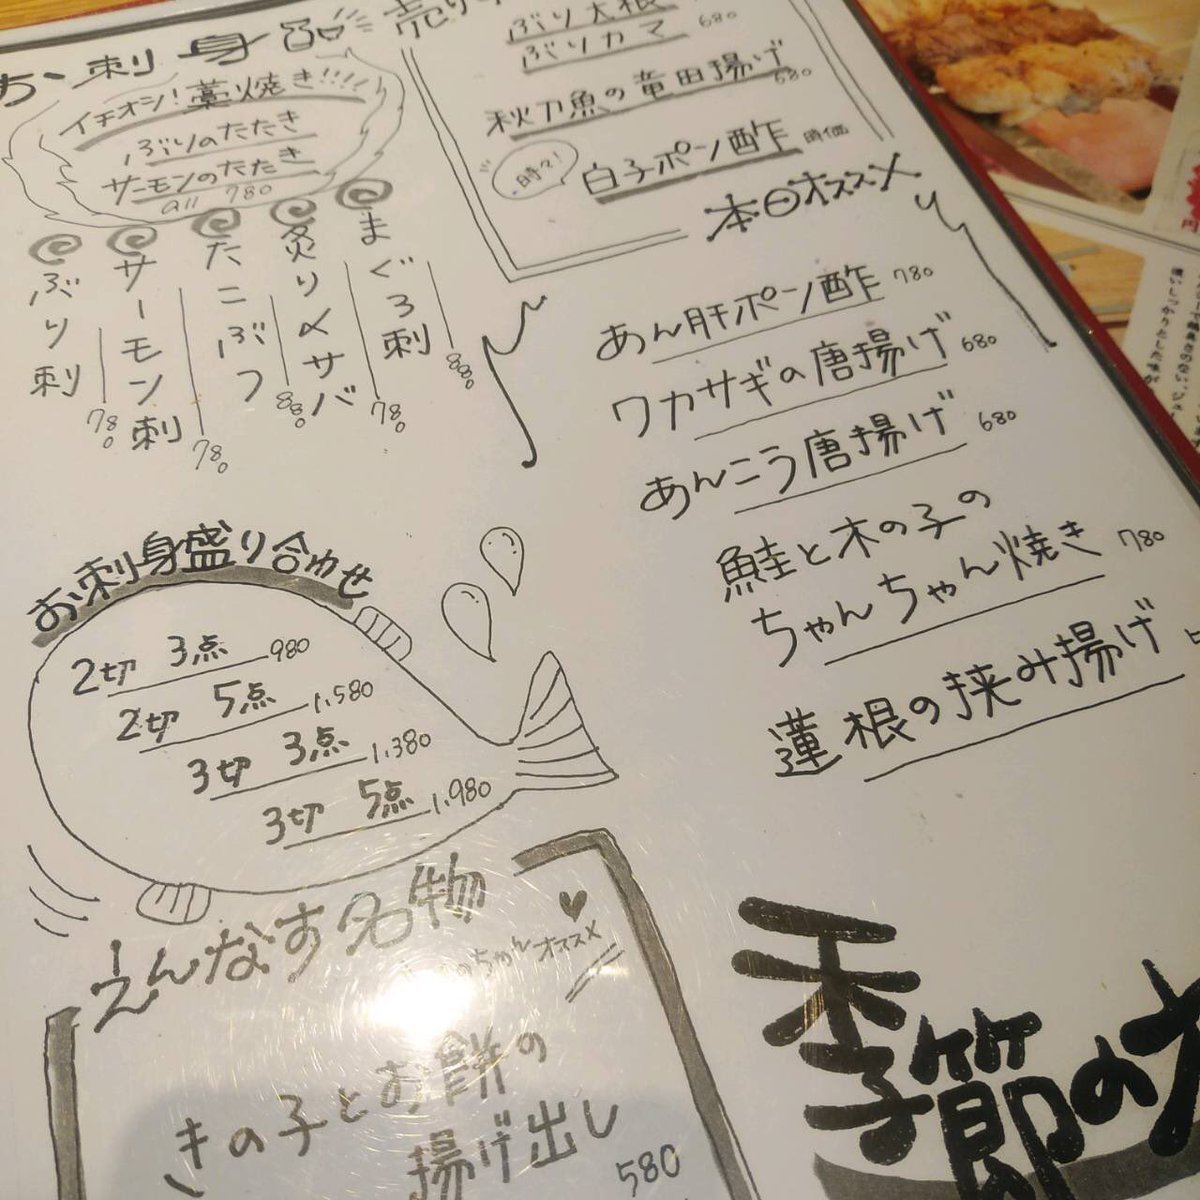 お刺身
イチオシ！藁焼き!!!!
ぶりのたたき
サーモンのたたき
all 780
まぐろ刺 880
炙り〆サバ 780
たこぶつ 880
サーモン刺 780
ぶり刺 780
ぶり大根
ぶりカマ 680
秋刀魚の竜田揚げ 680
時々！
白子ポン酢 時価
本日オススメ
あん肝ポン酢 780
ワカサギの唐揚げ 680
あんこう唐揚げ 680
鮭と木の子の
ちゃんちゃん焼き 780
蓮根の挟み揚げ
お刺身盛り合わせ
2切 3点 980
2切 5点 1,580
3切 3点 1,380
3切 5点 1,980
えんなす名物
ちゃんオススメ
きの子とお餅の
揚げ出し
580
季節の